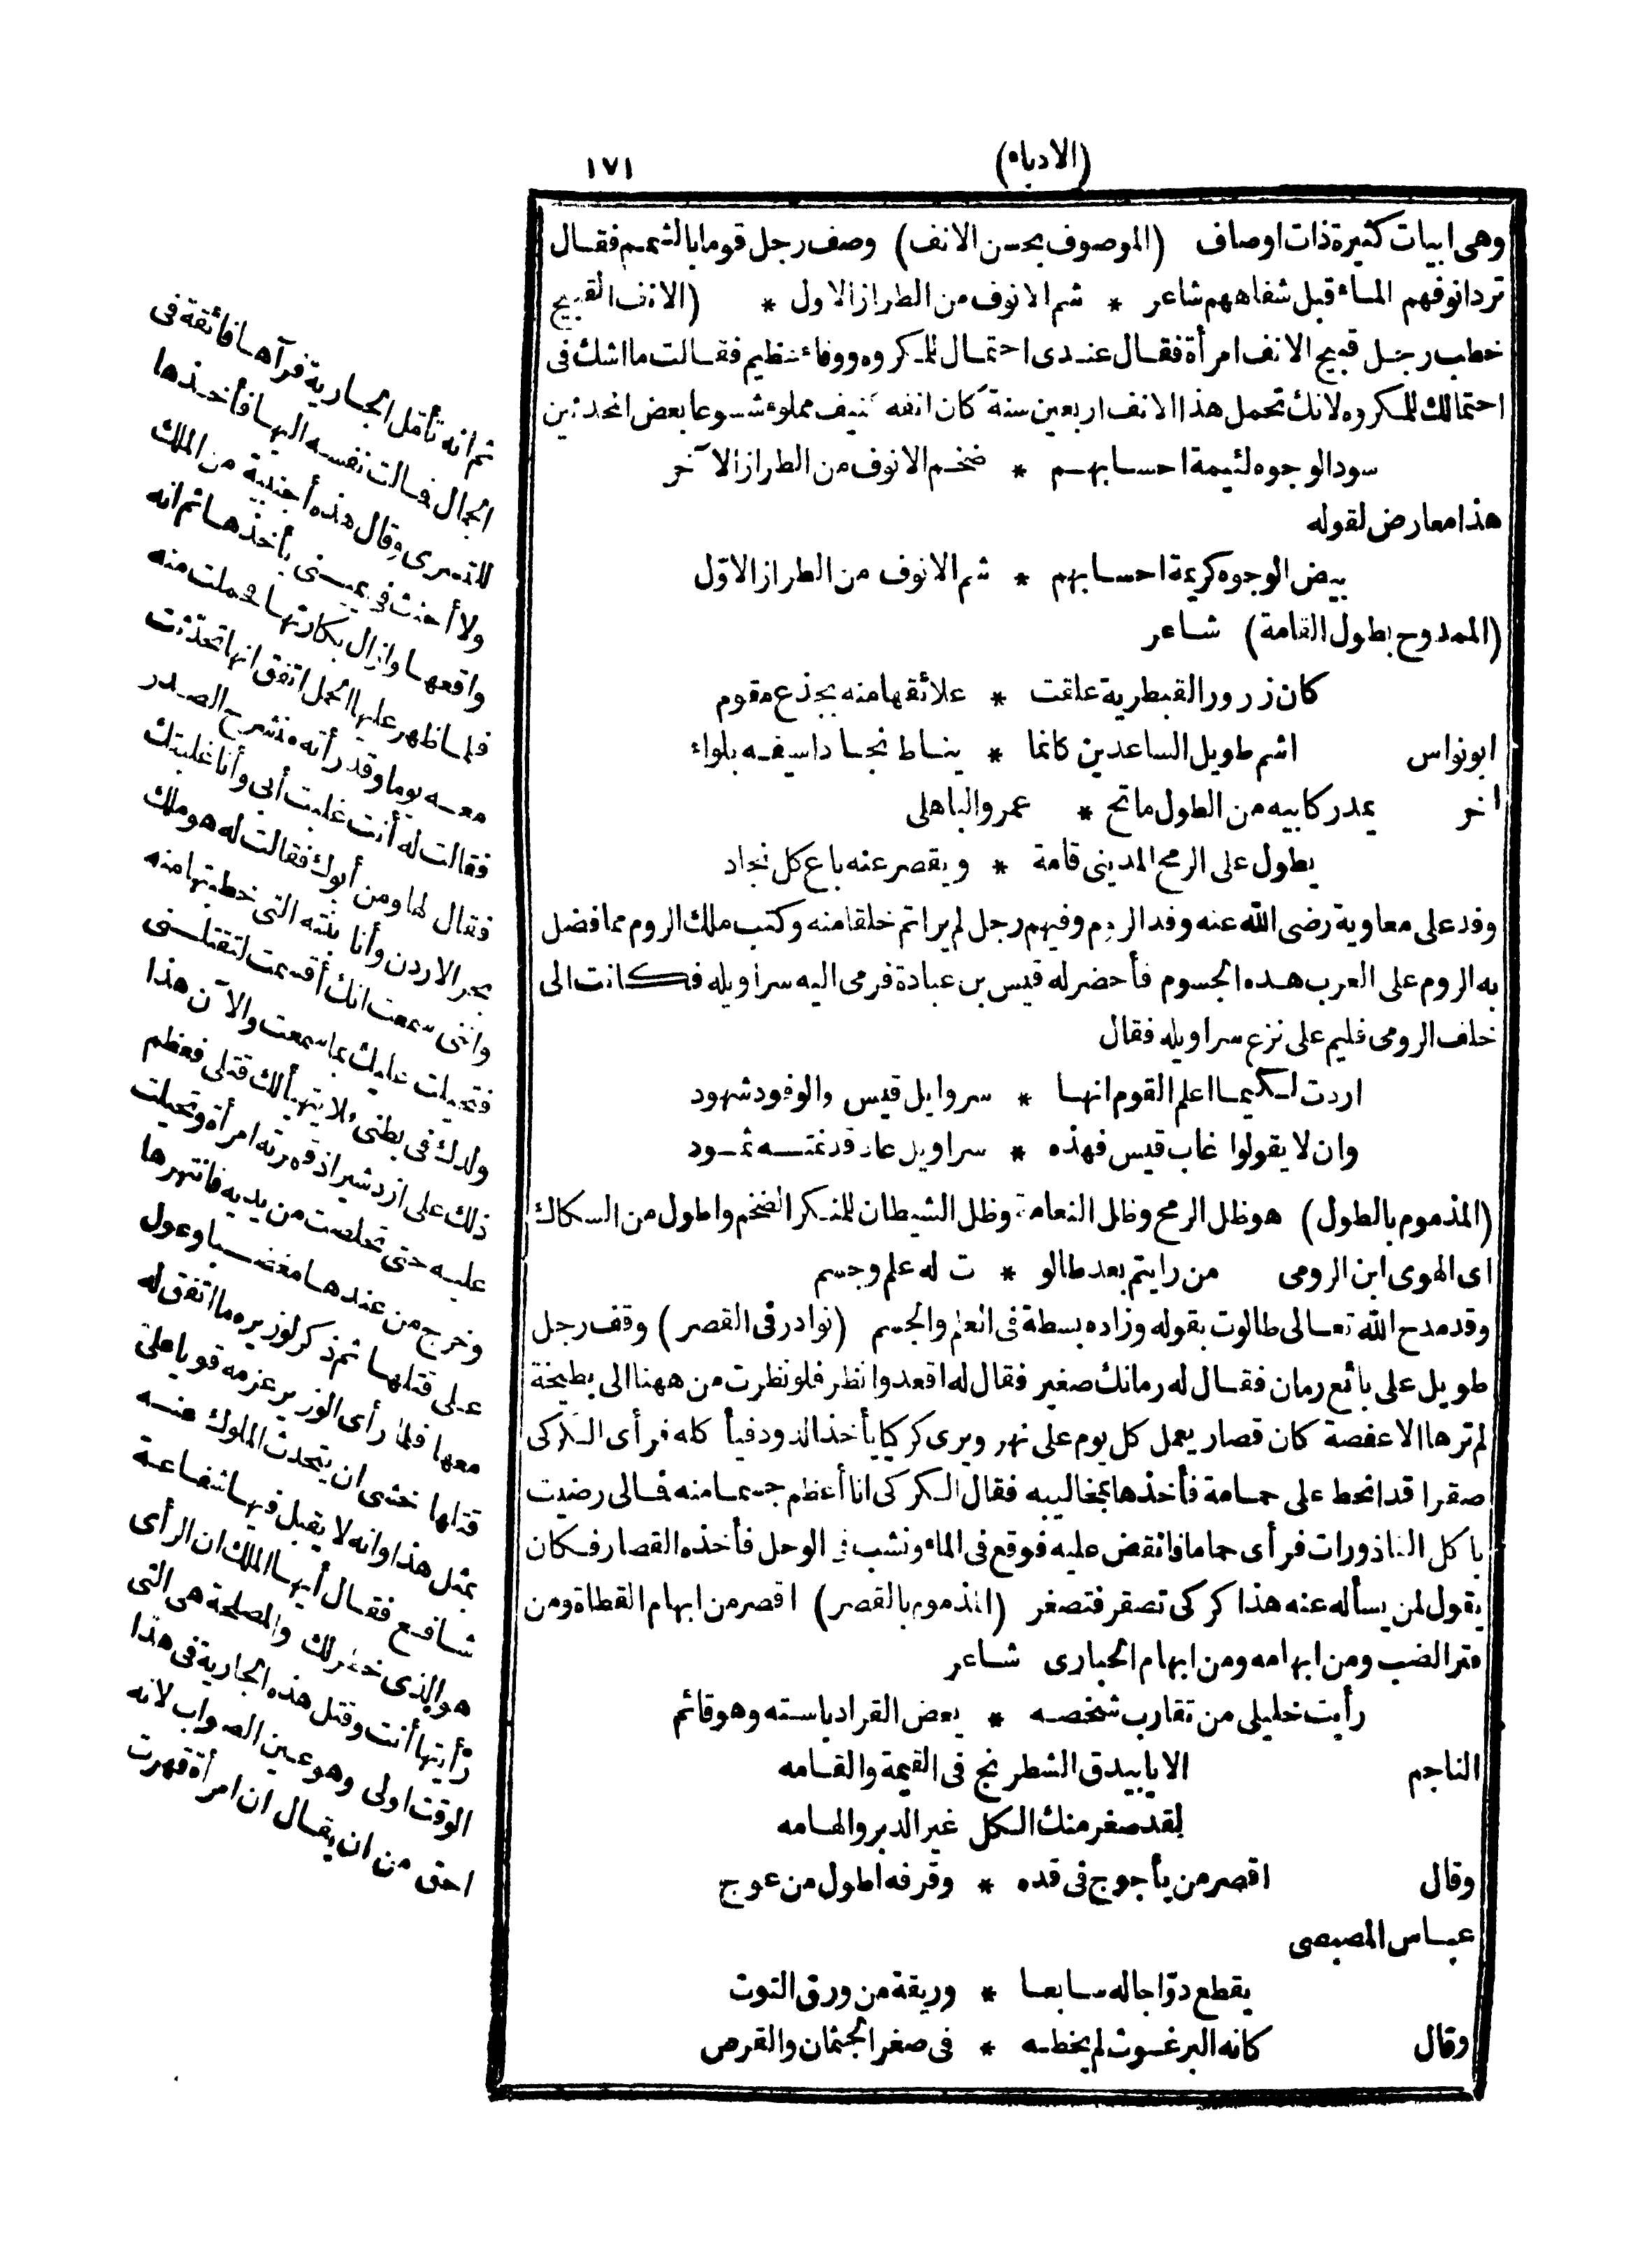 (الادباء)
١٧١
وهى ابيات كثيرة ذات اوصاف (الموصوف بحسن الانف) وصف رجل قوما بالشمم فقال
ترد انوفهم الماء قبل شفاههم شاعر * شم الانوف من الطراز الاول * (الانف القبيح
خطب رجل قبيح الانف امرأة فقال عندى احتمال للمكروه ووفاء عظيم فقالت ما اشك فى
احتمالك للمكروه لانك تحمل هذا الانف اربعين سنة كان انفه كنيف مملوء شسوعا بعض المحدثين
سود الوجوه لئيمة احسابهم * ضخم الانوف من الطراز الآخر
هذا معارض لقوله
بيض الوجوه كريمة احسابهم * شم الانوف من الطراز الاوّل
(الممدوح بطول القامة) شاعر
كان زرور القبطرية علقت * علائقها منه بجذع مقوم
ابونواس اشم طويل الساعدين كانما * يناط نجادا سيفه بلواء
اخر يمدركابيه من الطول ماتح * عمرو الباهلى
يطول على الرمح المدينى قامة * ويقصر عنه باع كل نجاد
وفد على معاوية رضى الله عنه وفد الروم وفيهم رجل لم ير اتم خلقا منه وكتب ملك الروم مما فضل
به الروم على العرب هذه الجسوم فأحضر له قيس بن عبادة فرمى اليه سراويله فكانت الى
خلف الرومى فليم على نزع سراويله فقال
اردت لكيما اعلم القوم انها * سروايل قيس والوفود شهود
وان لا يقولوا غاب قيس فهذه * سراويل عاد قد نمته ثمود
(المذموم بالطول) هو ظل الرمح وظل النعامة وظل الشيطان للمنكر الضخم واطول من السكاك
اى الهوى ابن الرومى من رايتم بعد طالو * ت له علم وجسم
وقد مدح الله تعالى طالوت بقوله وزاده بسطة فى العلم والجسم (نوادر فى القصر) وقف رجل
طويل على بائع رمان فقال له رمانك صغير فقال له اقعد وانظر فلو نظرت من ههنا الى بطيخة
لم ترها الا عفصة كان قصار يعمل كل يوم على نهر ويرى كركيا يأخذ الدود فيأ كله فرأى الكركى
صقرا قد انحط على حمامة فأخذها بمخاليبه فقال الكركى انا أعظم جسما منه فمالى رضيت
باكل القاذورات فرأى حماما فانقض عليه فوقع فى الماء ونشب فى الوحل فأخذه القصار فكان
يقول لمن يسأله عنه هذا كركى تصقر فتصغر (المذموم بالقصر) اقصر من ابهام القطاة ومن
فتر الضب ومن ابهامه ومن ابهام الحبارى شاعر
رأيت خليلى من تقارب شخصه * يعض القراد باسته وهو قائم
الناجم الا يا بيدق الشطرنج فى القيمة والقامه
لقد صغر منك الكل غير الدبر والهامه
وقال اقصر من يأجوج فى قده * وقرفه اطول من عوج
عباس المصيصى
يقطع دوّاجا له سابعا * وريقة من ورق التوت
وقال كانه البرغوث لم يخطه * فى صغر الجثمان والقرص
ثم انه تأمل الجارية فرآها فائقة فى
الجمال فمالت نفسه اليها فأخذها
للتسرى وقال هذه أجنبية من الملك
ولا أحنث فى يمينى بأخذها ثم انه
واقعها وازال بكارتها فحملت منه
فلما ظهر عليها الحمل اتفق انها تحدثت
معه يوما وقد رأته منشرح الصدر
فقالت له أنت غلبت أبى وأنا غلبتك
فقال لها ومن أبوك فقالت له هو ملك
بحر الاردن وأنا بنته التى خطبتها منه
واننى سمعت انك أقسمت لتقتلنى
فتحيلت عليك بما سمعت والآن هذا
ولدك فى بطنى ولا يتهيأ لك قتلى فعظم
ذلك على ازدشير اذ قهرته امرأة وتحيلت
عليه حتى تخلصت من يديه فانتهرها
وخرج من عندها مغضبا وعول
على قتلها ثم ذكر لوزيره ما اتفق له
معها فلما رأى الوزير عزمه قويا على
قتلها خشى ان يتحدث الملوك عنه
بمثل هذا وانه لا يقبل فيها شفاعة
شافع فقال أيها الملك ان الرأى
هو الذى خطر لك والمصلحة هى التى
رأيتها أنت وقتل هذه الجارية فى هذا
الوقت اولى وهو عين الصواب لانه
احق من ان يقال ان امرأة قهرت